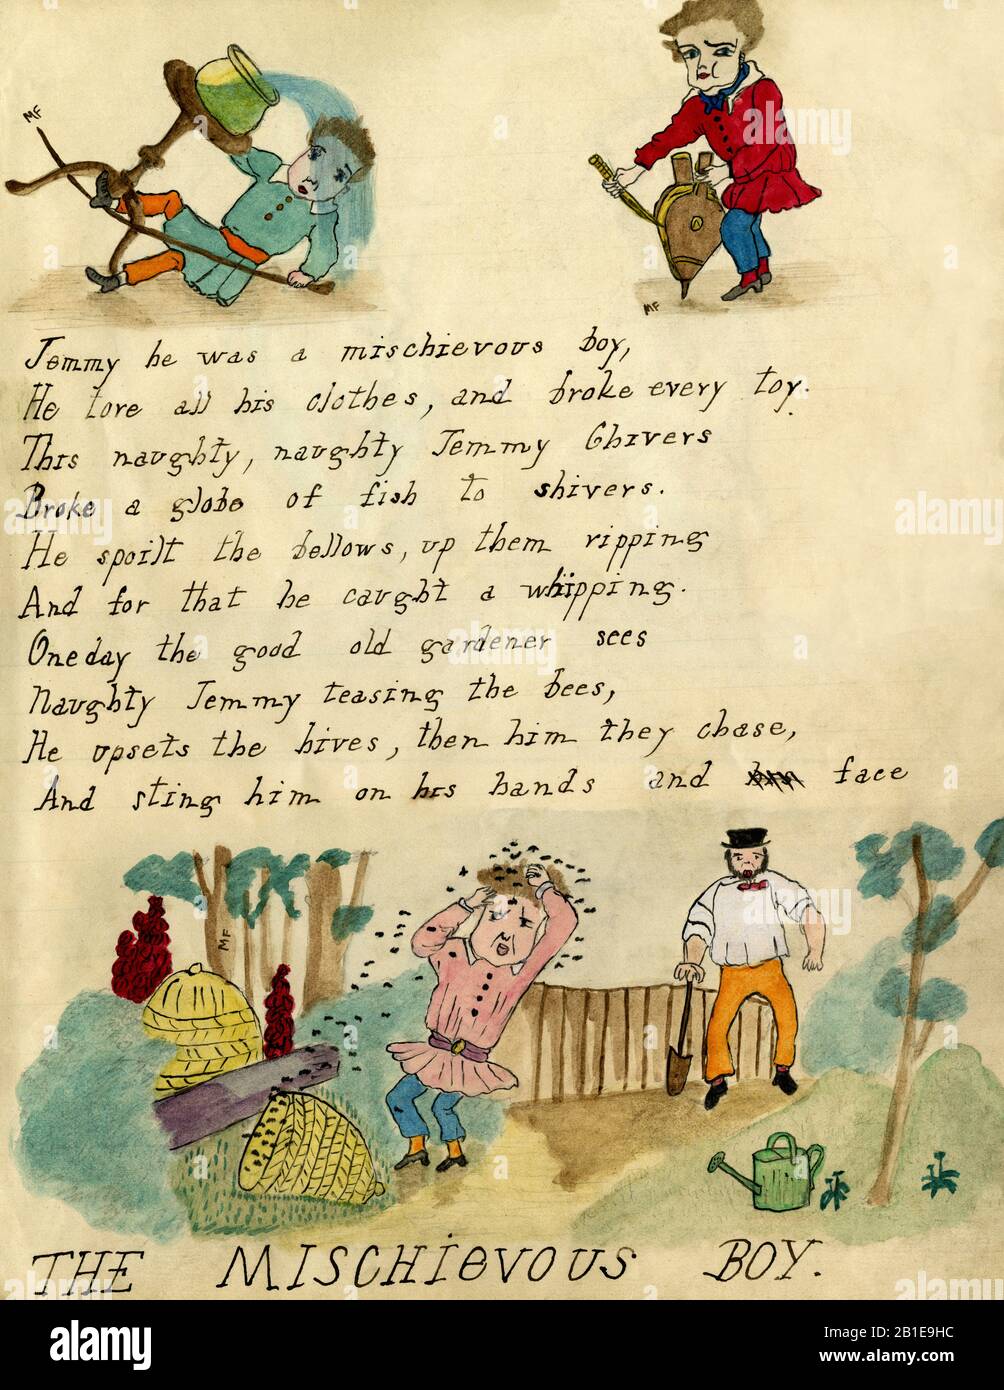 MF
MF
Jemmy he was a mischievous boy,
He tore all his clothes, and broke every toy.
This naughty, naughty Jemmy Chivers
Broke a globe of fish to shivers.
He spoilt the bellows, up them ripping
And for that he caught a whipping.
One day the good old gardener sees
Naughty Jemmy teasing the bees,
He upsets the hives, then him they chase,
And sting him on his hands and face
MF
THE MISCHiEVOUS BOY.
alamy
alamy
alamy
alamy
Image ID: 2B1E9HC
www.alamy.com